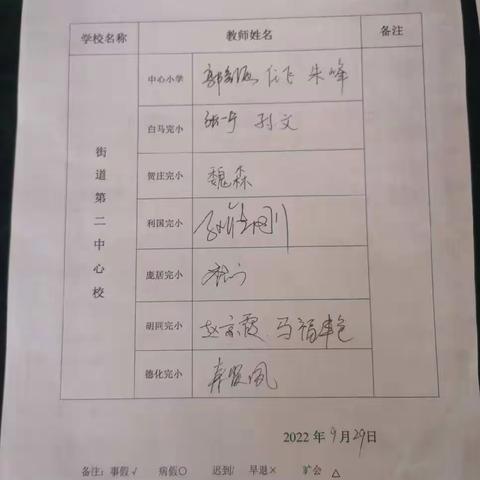 学校名称 教师姓名 备注
街道第二中心校
中心小学 任飞 朱峰
白马完小 张一宁 孙文
贺庄完小 魏森
利国完小
庞居完小
胡同完小 赵京霞 马福
德化完小
2022年9月29日
备注：事假√ 病假○ 迟到/ 早退× 旷会 △